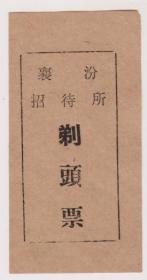 襄汾
招待所
剃
頭
票